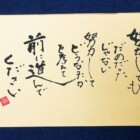 努力しても
だめだだめだ
じゃない
努力して
どうなったか
を考えて
前に進んで
ください